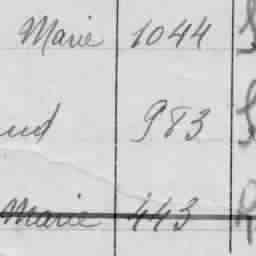 Marie 1044
nd 983
Marie 443